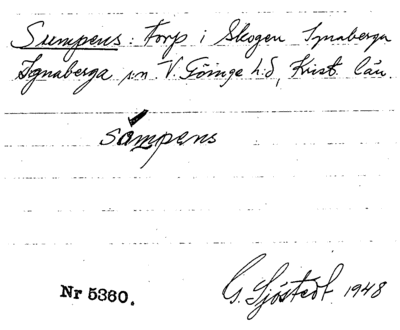 Sumpens: Torp i Skogen Ignaberga
Ignaberga s:n V. Göinge h:d, Krist. län
såmpens
Nr 5360. G. Sjöstedt 1948